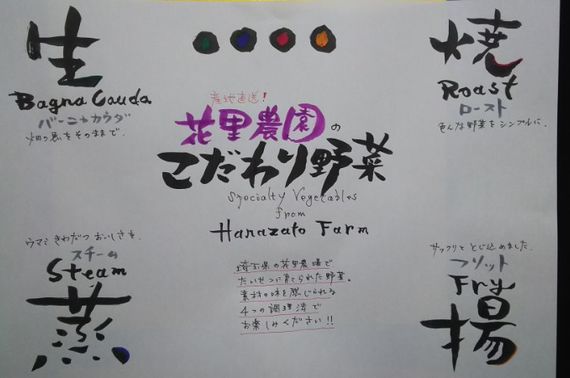 生
Bagna Cauda
バーニャカウダ
畑の恵みをそのままで.
焼
Roast
ロースト
色んな野菜をシンプルに.
産地直送!
花里農園の
こだわり野菜
Specialty Vegetables
from
Hanazato Farm
埼玉県の花里農場で
たいせつに育てられた野菜.
素材の味を感じられる
4つの調理法で
お楽しみください!!
ウマミきわだつおいしさを.
スチーム
Steam
蒸
サックリととじ込めました.
フリット
Fry
揚